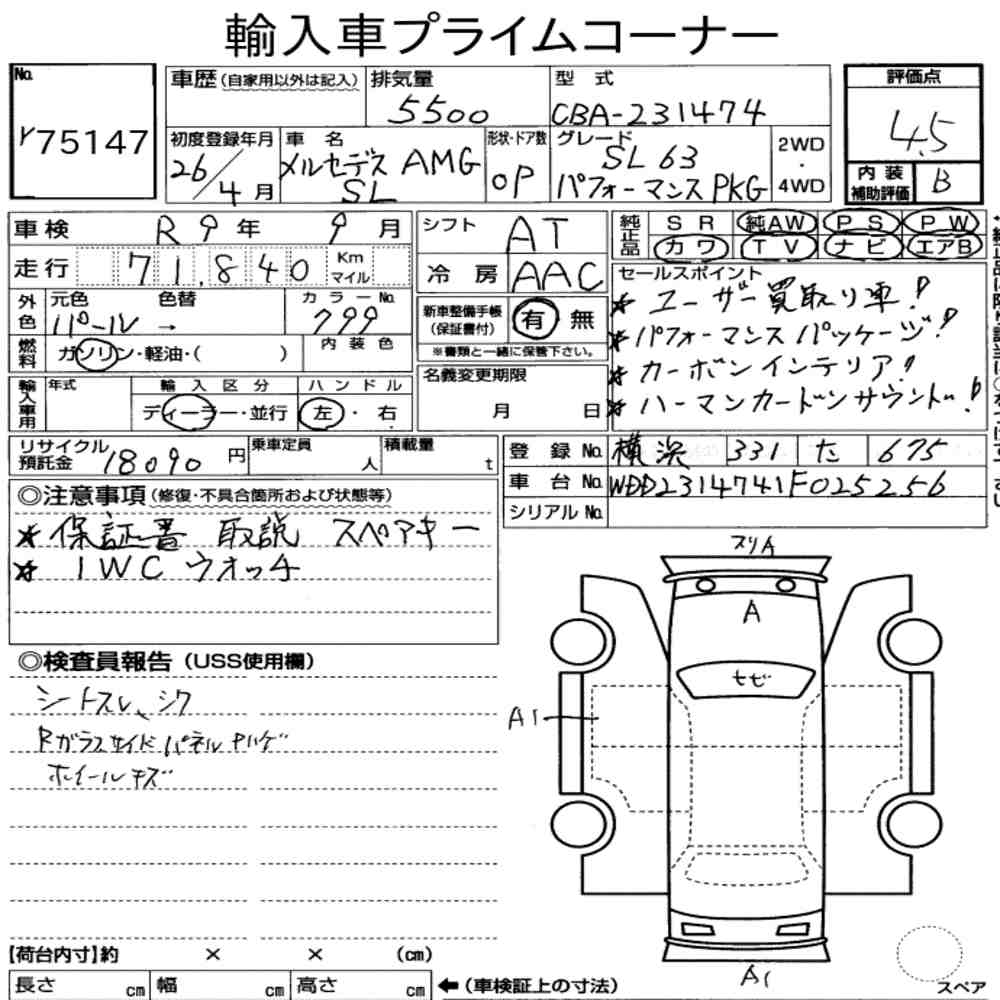 輸入車プライムコーナー
No.
r75147
車歴(自家用以外は記入)
排気量
5500
型式
CBA-231474
評価点
4.5
内装補助評価
B
初度登録年月
26/4月
車名
メルセデス AMG
SL
形状・ドア数
OP
グレード
SL63
パフォーマンスPKG
2WD
・
4WD
車検 R9年 9月
シフト AT
純正品
SR 純AW PS PW
カワ TV ナビ エアB
走行 71,840 Km マイル
冷房 AAC
セールスポイント
* ユーザー買取り車!
* パフォーマンスパッケージ!
* カーボンインテリア!
* ハーマンカードンサウンド!
外色
元色 色替 カラーNo.
パール → 799
新車整備手帳(保証書付) 有 無
※書類と一緒に保管下さい。
燃料
ガソリン・軽油・( )
内装色
輸入車用
年式
輸入区分
ディーラー・並行
ハンドル
左・右
名義変更期限
月 日
リサイクル預託金 18090円
乗車定員 人
積載量 t
登録No. 横浜 331 た 675
車台No. WDD2314741F025256
シリアルNo.
◎注意事項(修復・不具合箇所および状態等)
* 保証書 取説 スペアキー
* IWC ウォッチ
◎検査員報告(USS使用欄)
シートスレ、シワ
Rガラスサイドパネルキハゲ
ホイールキズ
スリA
A
トビ
A1
A1
スペア
【荷台内寸】約 × × (cm)
長さ cm 幅 cm 高さ cm
←(車検証上の寸法)